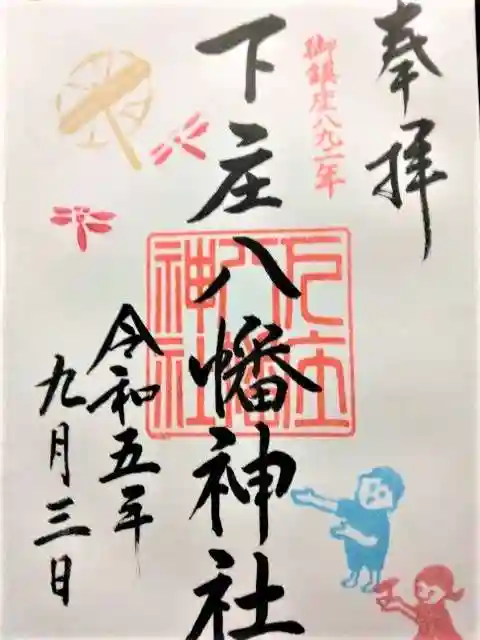 奉拝
御鎮座八九二年
下庄八幡神社
下庄八幡神社
令和五年
九月三日